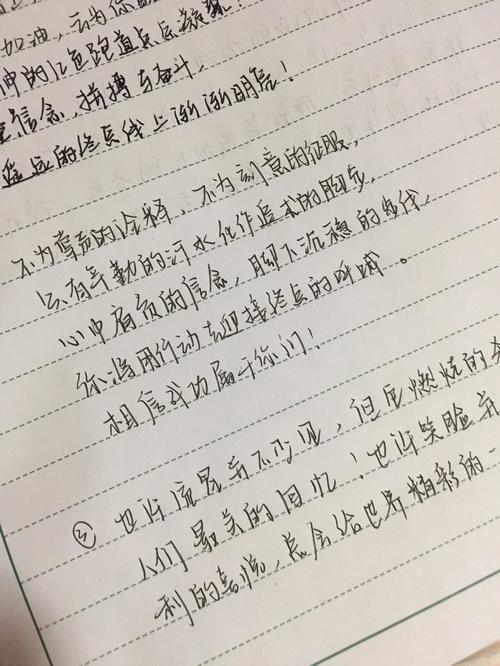 加油，云为你
中的红色跑道点点凝聚！
信念，拼搏与奋斗，
遥远的终点线上渐渐明信！
不为尊贵的诠释，不为刻意的征服，
只有辛勤的汗水化作追求的脚步，
心中肩负的信念，脚下沉稳的步伐，
你将用行动去迎接终点的呼喊。
相信成功属于你们！
② 也许流星并不少见，但它燃烧的
人们最美的回忆！也许笑脸并
利的喜悦，总会给世界精彩的一